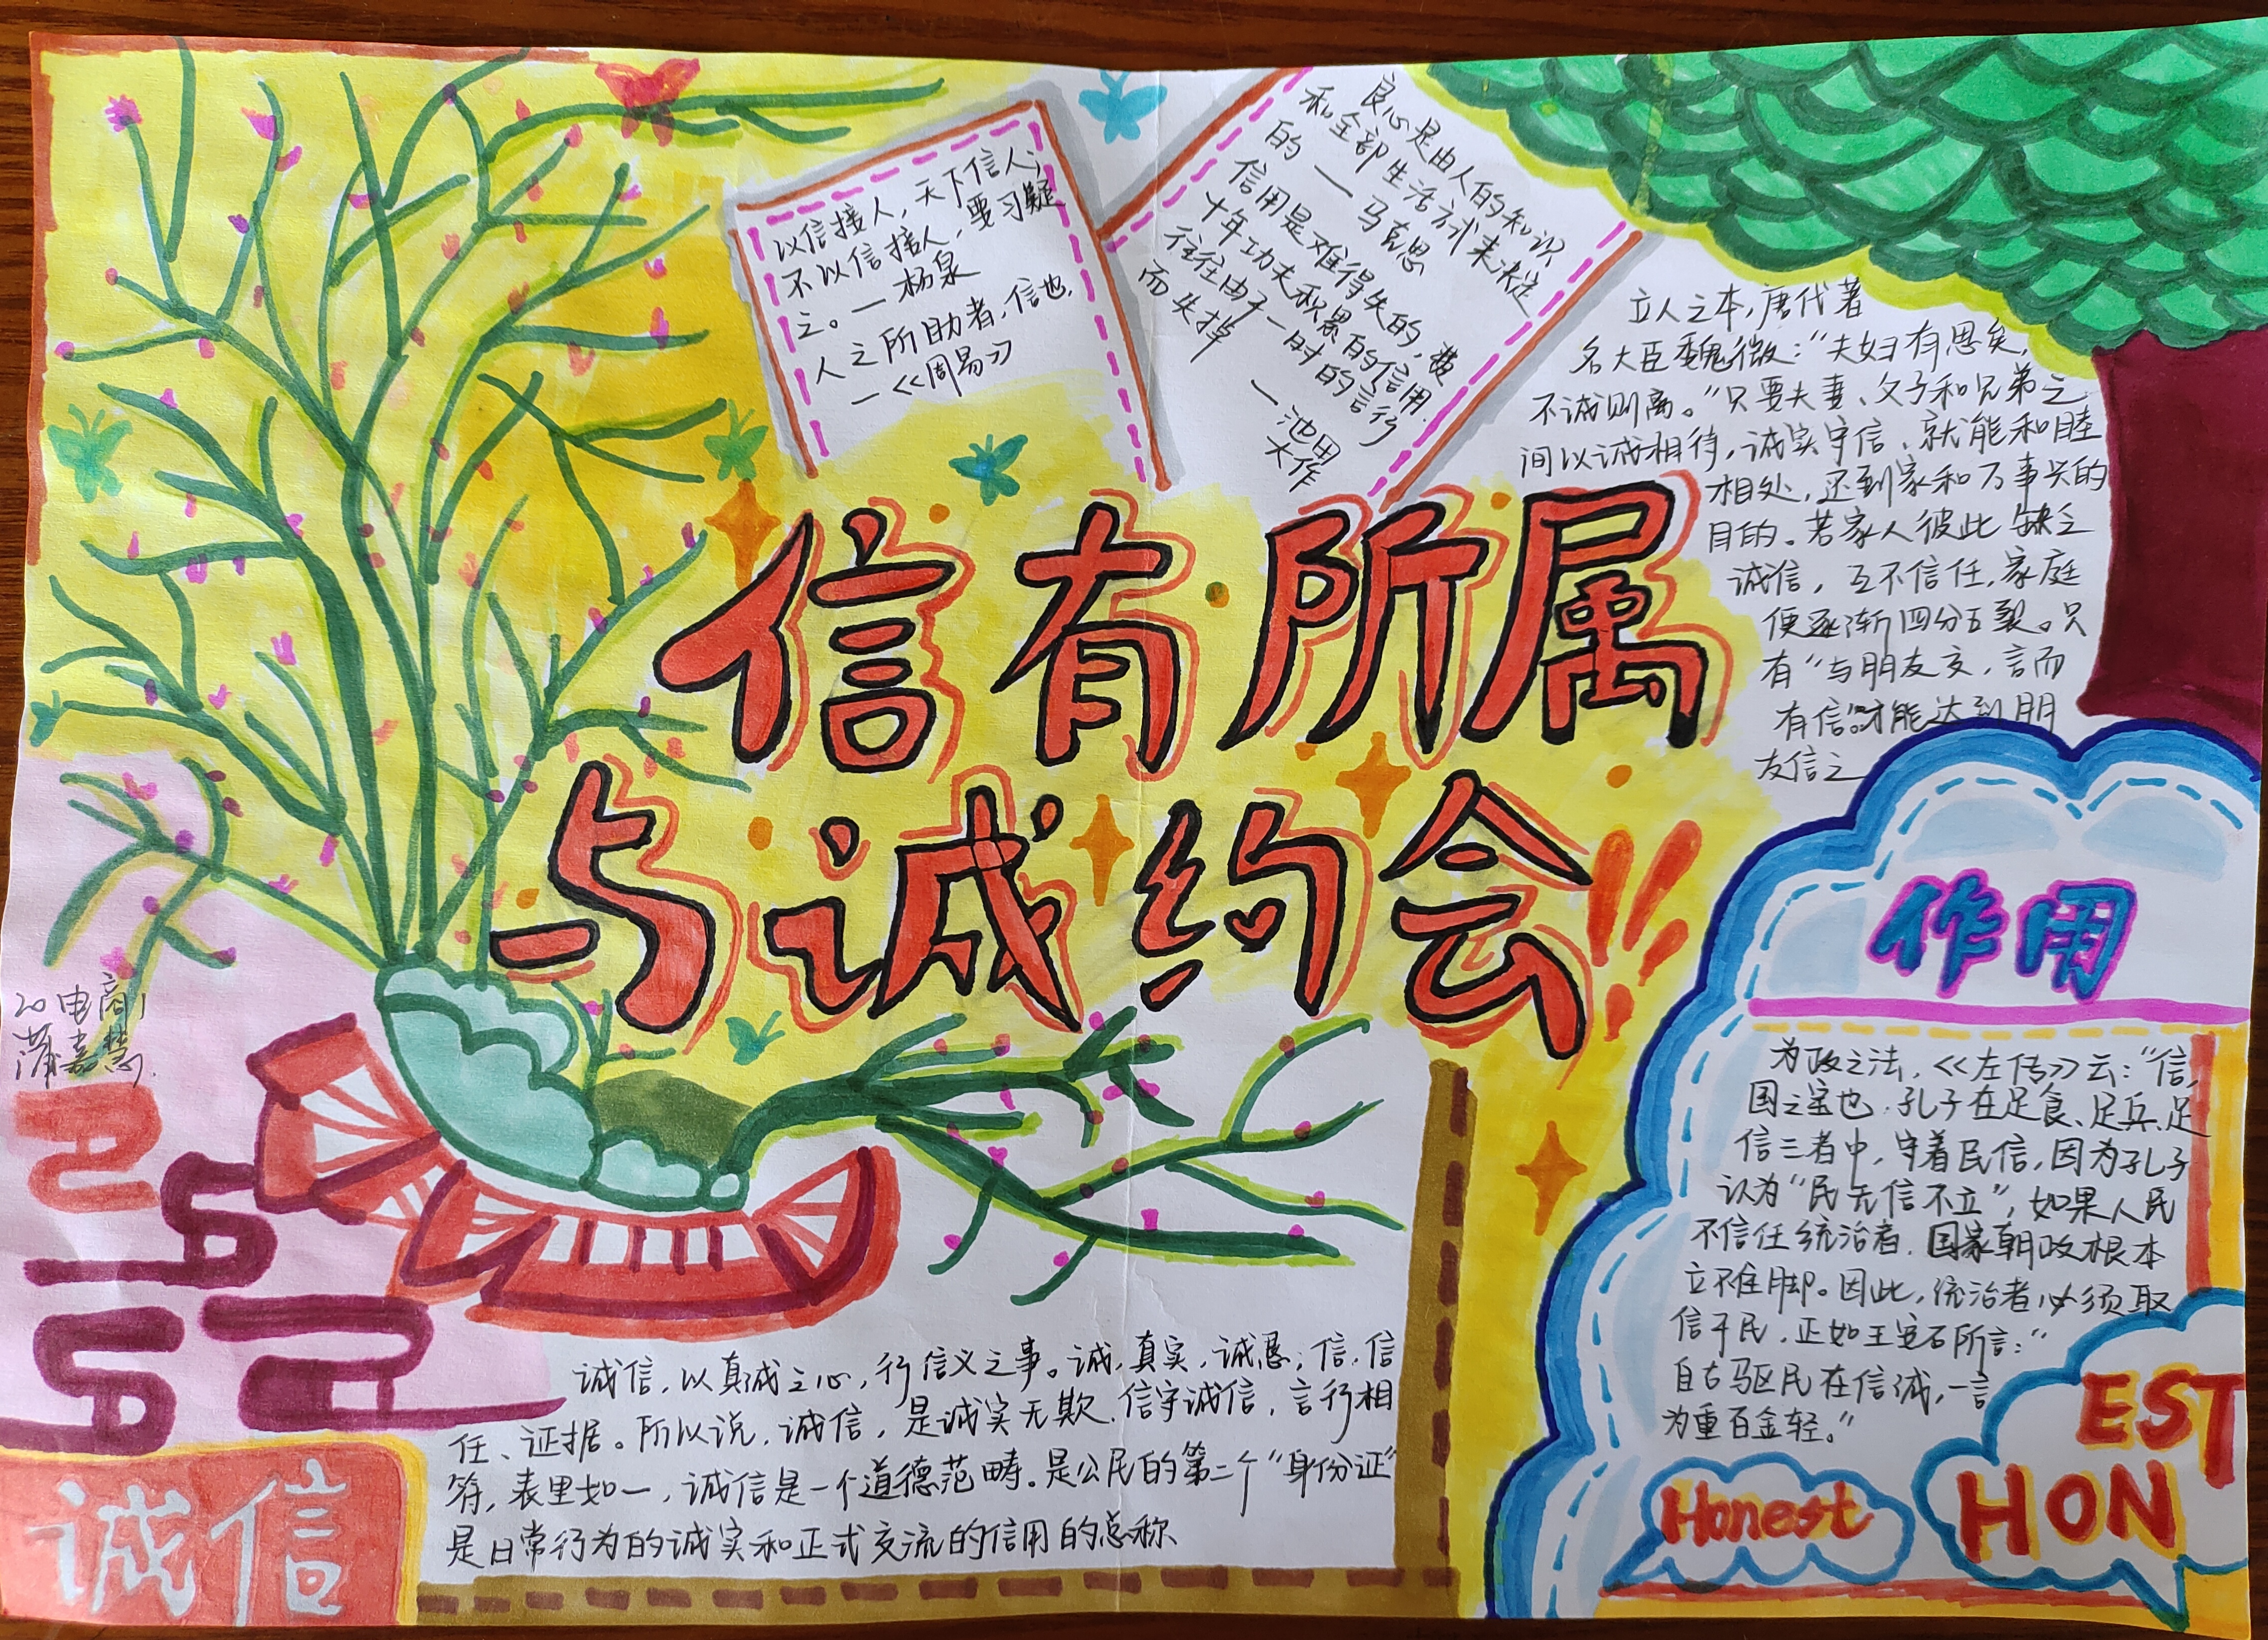 以信接人，天下信人；
不以信接人，妻子疑
之。—杨泉
人之所助者，信也，
—《周易》
良心是由人的知识
和全部生活方式来决定
的 — 马克思
信用是难得失的，费
十年功夫积累的信用
往往由于一时的言行
而失掉
—池田
大作
信有所属
与诚约会
立人之本，唐代著
名大臣魏徵：“夫妇有恩矣，
不诚则离。”只要夫妻、父子和兄弟之
间以诚相待，诚实守信、就能和睦
相处，还到家和万事兴的
目的。若家人彼此缺乏
诚信，互不信任，家庭
便逐渐四分五裂。只
有“与朋友交，言而
有信”才能达到朋
友信之
作用
为政之法，《左传》云：“信，
国之宝也.孔子在足食、足兵、足
信三者中，守着民信，因为孔子
认为“民无信不立”，如果人民
不信任统治者，国家朝政根本
立不住脚。因此，统治者必须取
信于民，正如王安石所言：“
自古驱民在信诚，一言
为重百金轻。”
20电商1
蒲嘉慧
诚信，以真诚之心，行信义之事。诚，真实，诚恳；信，信
任、证据。所以说，诚信，是诚实无欺，信守诚信，言行相
符，表里如一，诚信是一个道德范畴。是公民的第二个“身份证”
是日常行为的诚实和正式交流的信用的总称
诚信
Honest
HON
EST